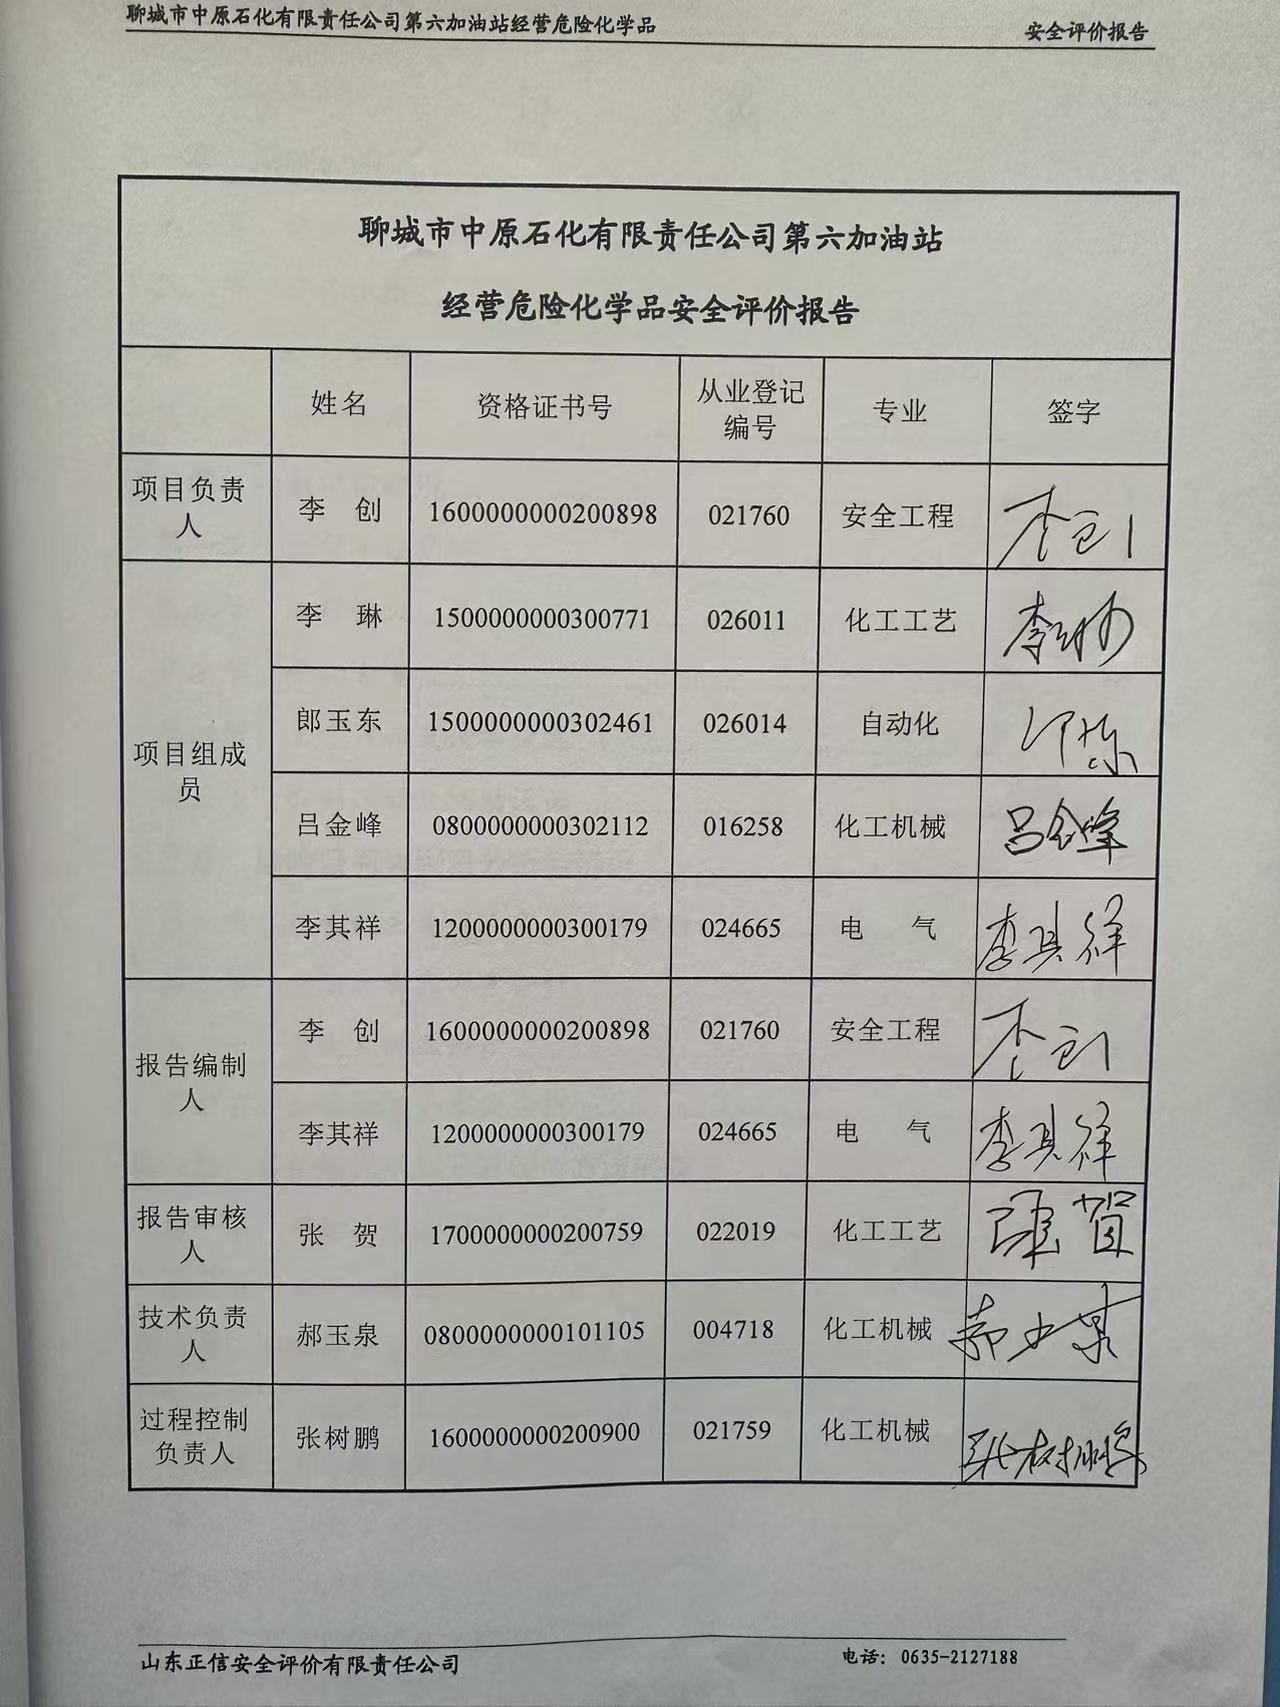 聊城市中原石化有限责任公司第六加油站经营危险化学品 安全评价报告
聊城市中原石化有限责任公司第六加油站
经营危险化学品安全评价报告
姓名 资格证书号 从业登记编号 专业 签字
项目负责人 李 创 1600000000200898 021760 安全工程 李创
项目组成员 李 琳 1500000000300771 026011 化工工艺 李琳
郎玉东 1500000000302461 026014 自动化
吕金峰 0800000000302112 016258 化工机械 吕金峰
李其祥 1200000000300179 024665 电 气 李其祥
报告编制人 李 创 1600000000200898 021760 安全工程 李创
李其祥 1200000000300179 024665 电 气 李其祥
报告审核人 张 贺 1700000000200759 022019 化工工艺 张贺
技术负责人 郝玉泉 0800000000101105 004718 化工机械 郝玉泉
过程控制负责人 张树鹏 1600000000200900 021759 化工机械 张树鹏
山东正信安全评价有限责任公司 电话：0635-2127188